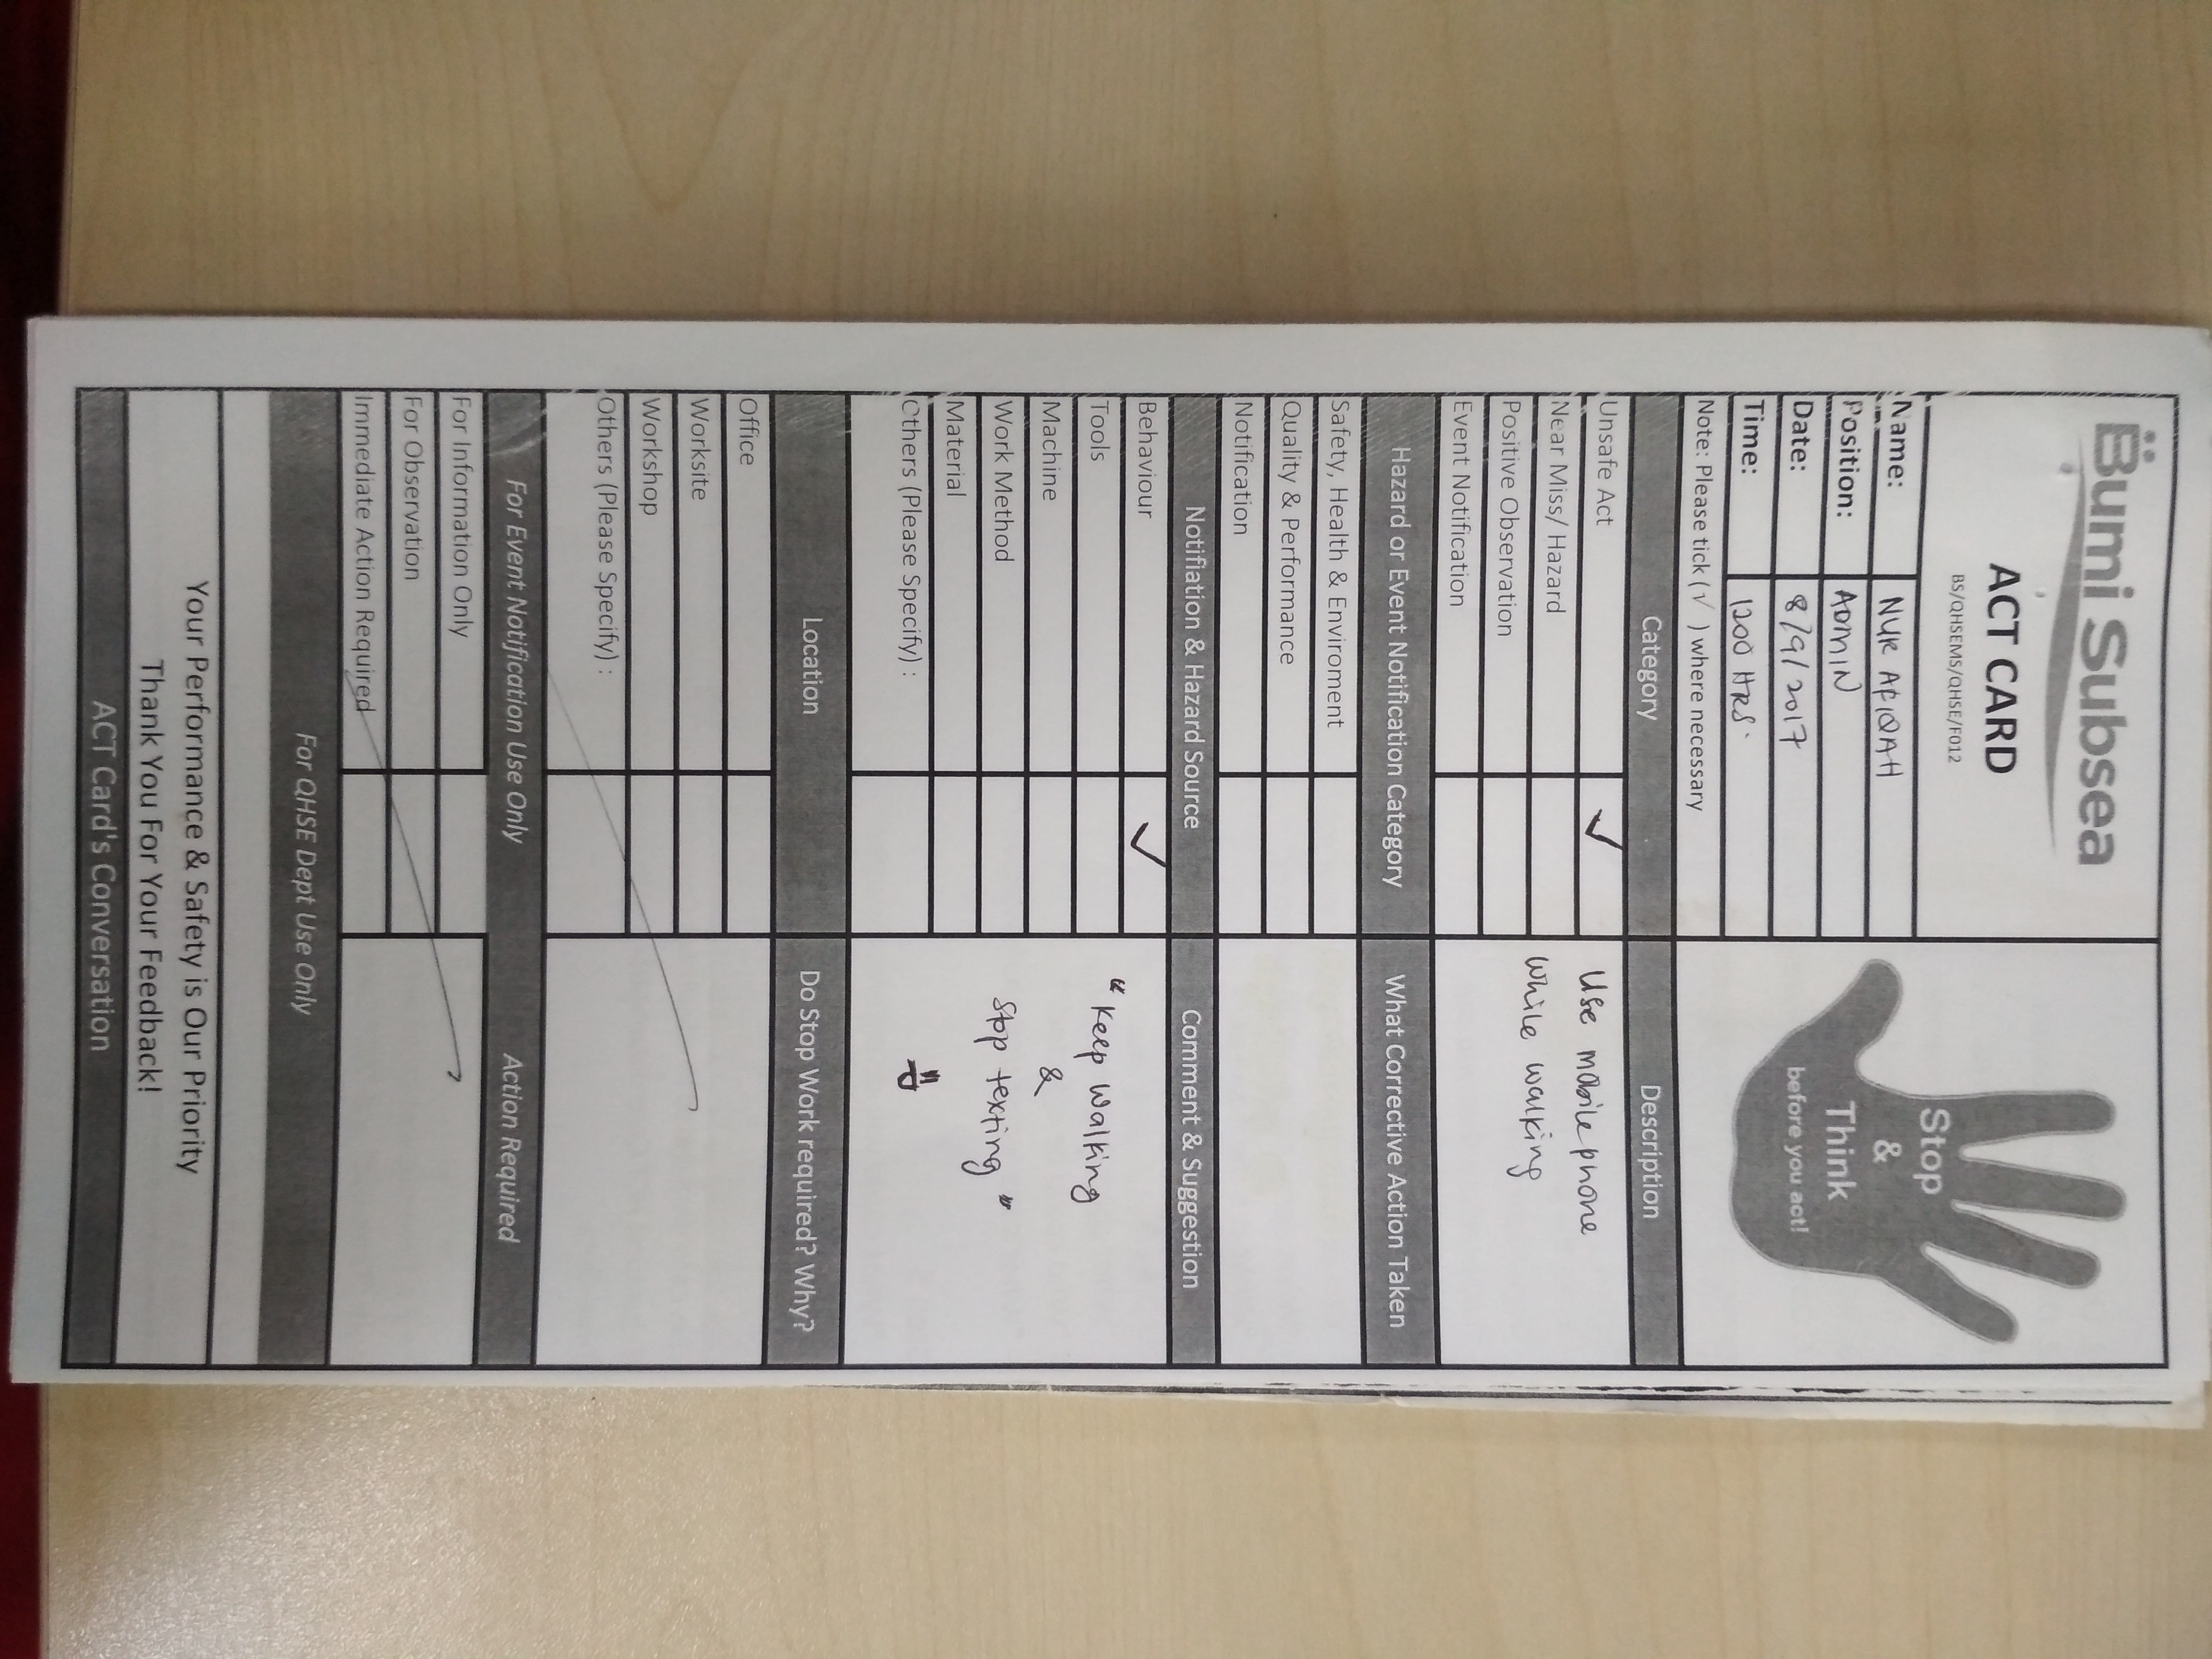 Bumi Subsea
ACT CARD
BS/QHSEMS/QHSE/F012
Stop
&
Think
before you act!
Name: NUR AFIQAH
Position: ADMIN
Date: 8/9/2017
Time: 1200 HRS.
Note: Please tick (√ ) where necessary
Category Description
Unsafe Act ✓
Near Miss/ Hazard
Positive Observation
Event Notification
Use mobile phone
while walking
Hazard or Event Notification Category What Corrective Action Taken
Safety, Health & Enviroment
Quality & Performance
Notification
Notifiation & Hazard Source Comment & Suggestion
Behaviour ✓
Tools
Machine
Work Method
Material
Others (Please Specify) :
"Keep walking
&
Stop texting"
Location Do Stop Work required? Why?
Office
Worksite
Workshop
Others (Please Specify) :
For Event Notification Use Only Action Required
For Information Only
For Observation
Immediate Action Required
For QHSE Dept Use Only
Your Performance & Safety is Our Priority
Thank You For Your Feedback!
ACT Card's Conversation